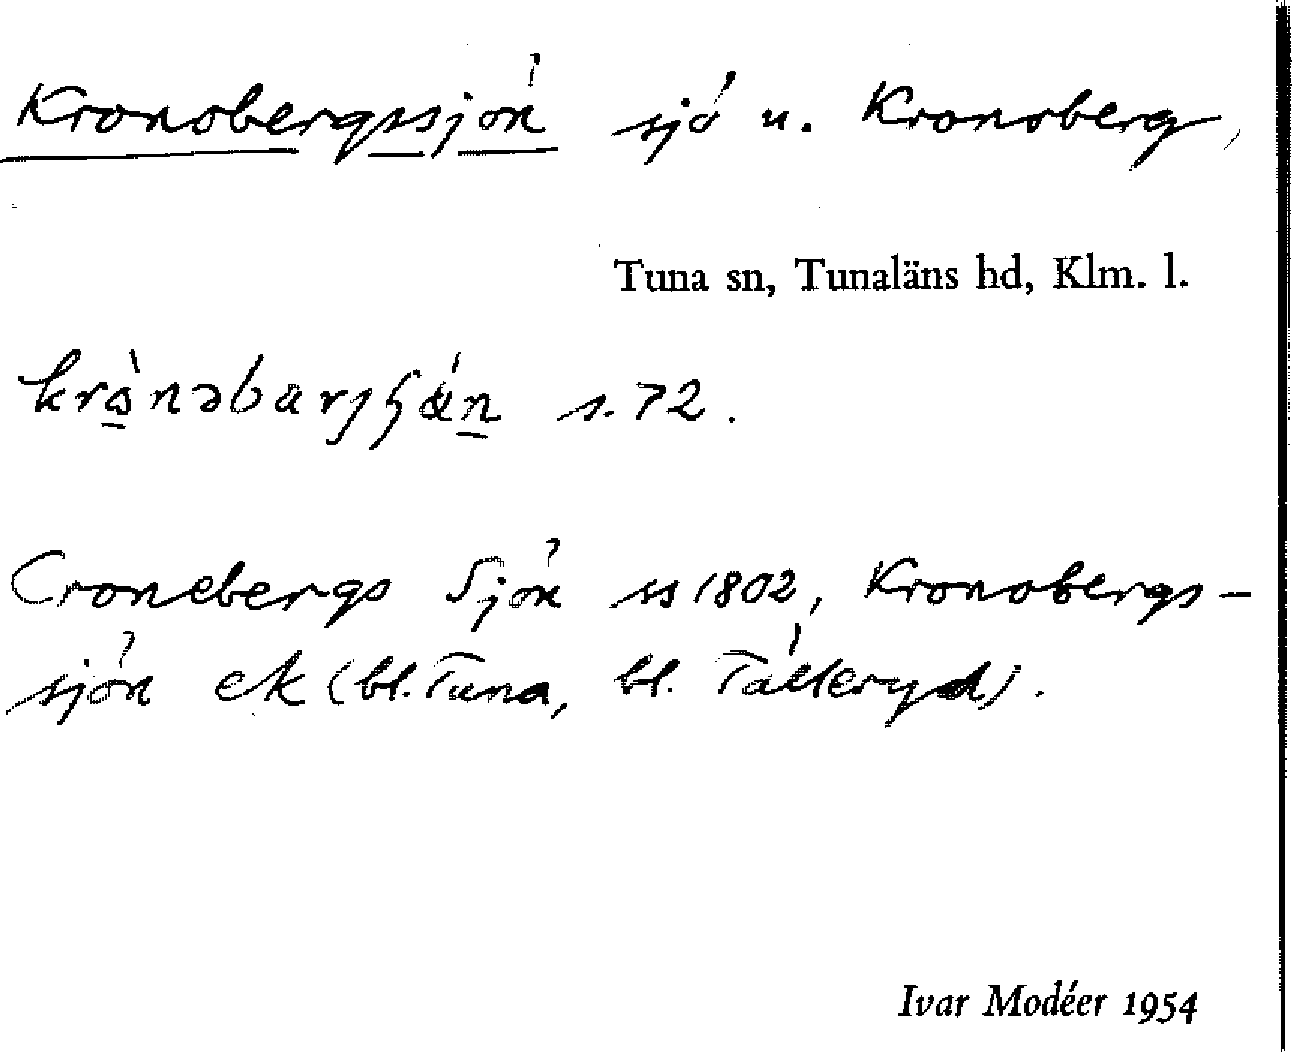 Kronobergssjön sjö u. Kronoberg,
Tuna sn, Tunaläns hd, Klm. l.
s. 72.
Cronebergs Sjön ss 1802, Kronobergs-
sjön ek (bl. Tuna, bl. Tälleryd).
Ivar Modéer 1954